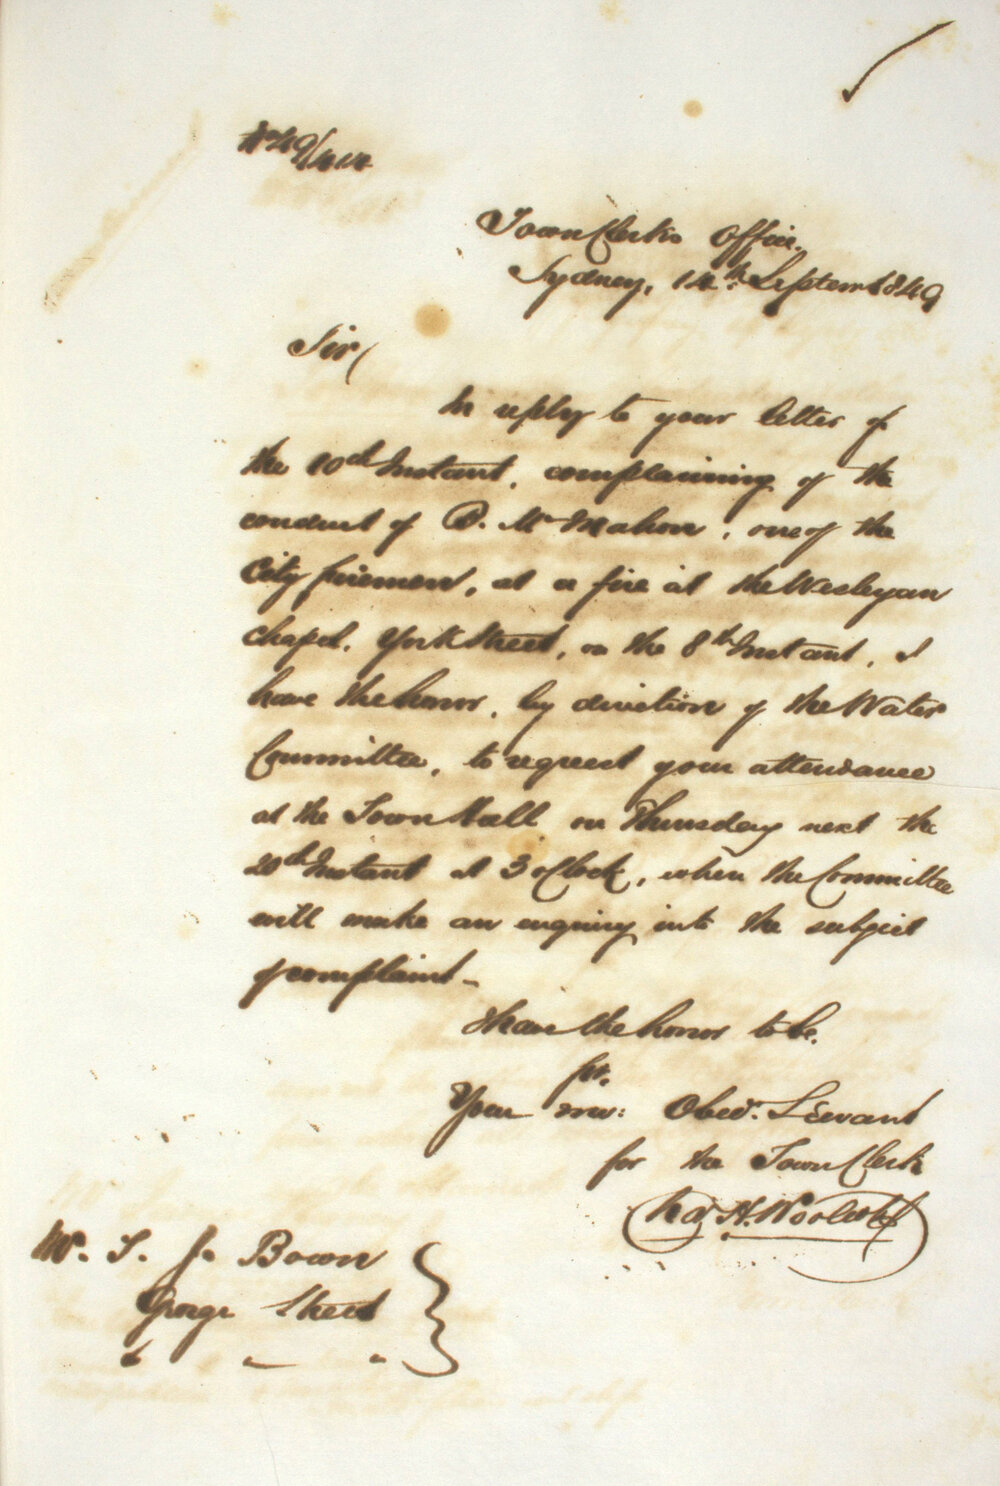 No 49/414
Town Clerks Office.
Sydney, 14th Septemr 1849
Sir
In reply to your letter of
the 10th Instant, complaining of the
conduct of B. McMahon, one of the
City firemen, at a fire at the Wesleyan
Chapel, York Street, on the 8th Instant, I
have the honor, by direction of the Water
Committee, to request your attendance
at the Town Hall on Thursday next the
20th Instant at 3 oClock, when the Committee
will make an inquiry into the subject
of complaint -
I have the honor to be,
Sir,
Your mo: Obedt. Servant
for the Town Clerk
Chas H. Woolcott
Mr. T. J. Bown
George Street